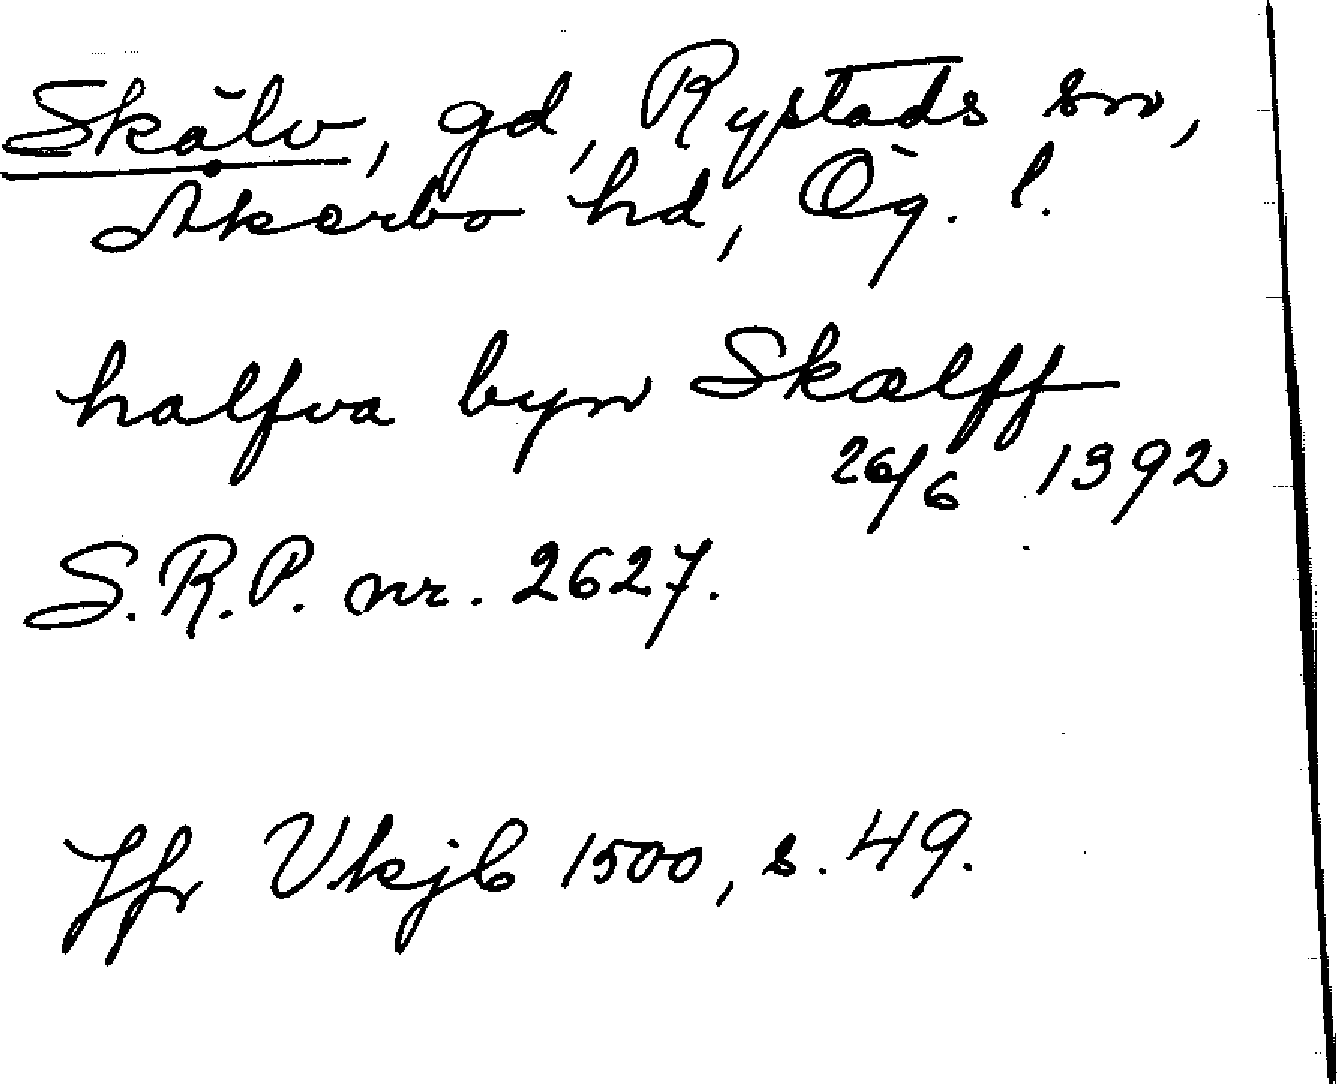 Skälv, gd, Rystads sn,
Åkerbo hd, Ög. l.
halfva byn Skælff
26/6 1392
S.R.P. nr. 2627.
Jfr Vkjb 1500, s. 49.